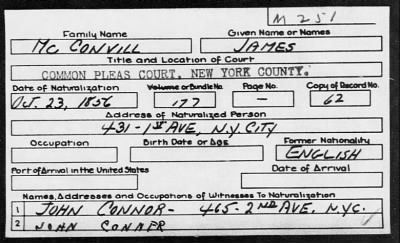 M 251
Family Name Given Name or Names
Mc CONVILL JAMES
Title and Location of Court
COMMON PLEAS COURT. NEW YORK COUNTY.
Date of Naturalization Volume or Bundle No. Page No. Copy of Record No.
Oct. 23, 1856 177 — 62
Address of Naturalized Person
431-1ST AVE, N.Y. CITY
Occupation Birth Date or Age Former Nationality
ENGLISH
Port of Arrival in the United States Date of Arrival
Names, Addresses and Occupations of Witnesses To Naturalization
1 JOHN CONNOR- 465-2ND AVE. N.Y.C.
2 JOHN CONNER